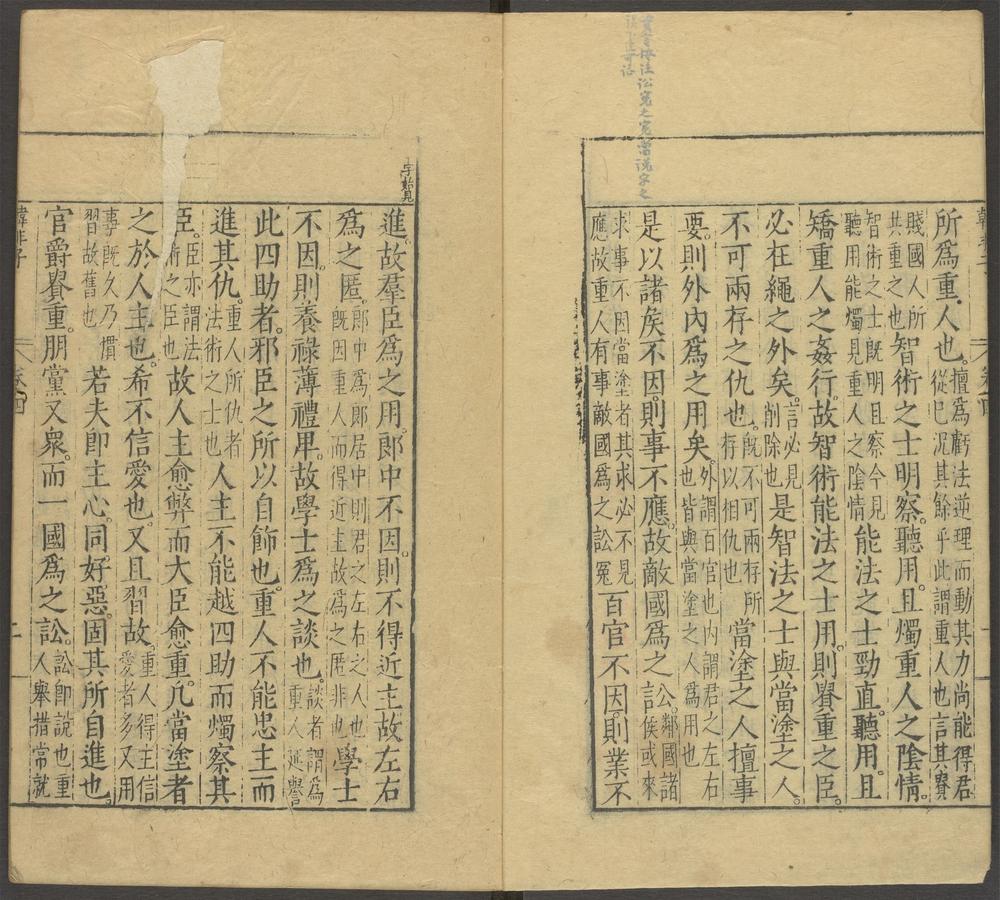 所爲重人也。擅爲虧法逆理而動其力尚能得君從巳況其餘乎此謂重人也言其賽
賤國人所共重之也智術之士明察。聽用。且燭重人之陰情。
智術之士既明且察今見聽用能燭見重人之陰情能法之士勁直。聽用。且
矯重人之姦行。故智術能法之士用。則賮重之臣。
必在繩之外矣。言必見削除也是智法之士與當塗之人。
不可兩存之仇也。既不可兩存所存以相仇也當塗之人擅事
要。則外內爲之用矣。外謂百官也內謂君之左右也皆與當塗之人爲用也
是以諸矦不因。則事不應。故敵國爲之訟。鄰國諸矦或來
求事不因當塗者其求必不見應故重人有事敵國爲之訟冤百官不因。則業不
字始見
進。故羣臣爲之用。郎中不因。則不得近主。故左右
爲之匿。郎中爲郎居中則君之左右之人也既因重人而得近主故爲之匿非也學士
不因。則養祿薄禮卑。故學士爲之談也。談者謂爲重人延譽
此四助者。邪臣之所以自飾也。重人不能忠主而
進其仇。重人所仇者法術之士也人主不能越四助而燭察其
臣。臣亦謂法術之臣也故人主愈弊而大臣愈重。凡當塗者
之於人主也。希不信愛也。又且習故。重人得主信愛者多又用
事既久乃慣習故舊也若夫卽主心。同好惡。固其所自進也。
官爵賮重。朋黨又衆。而一國爲之訟。訟卽說也重人舉措常就
韓非子